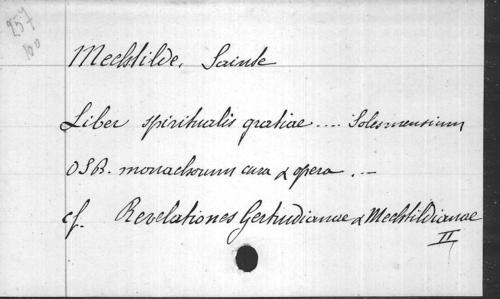 257
100
Mechtilde, Sainte
Liber spiritualis gratiae .... Solesmensium
OSB. monachorum cura & opera . —
cf. Revelationes Gertrudianae & Mechtildianae
II